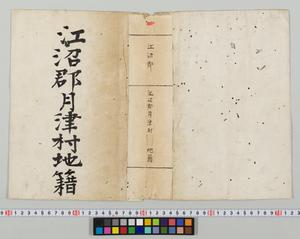 江沼郡月津村地籍
江沼郡
江沼郡月津村 地籍